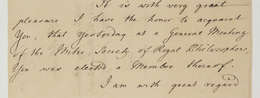 It is with very great
pleasure I have the honor to acquaint
You, that yesterday at a General Meeting
of the Society of Royal Philosophers,
You was elected a Member thereof.
I am with great regard